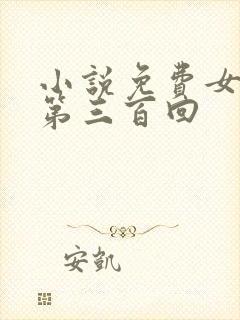 小說免費女
第三百回
安凱